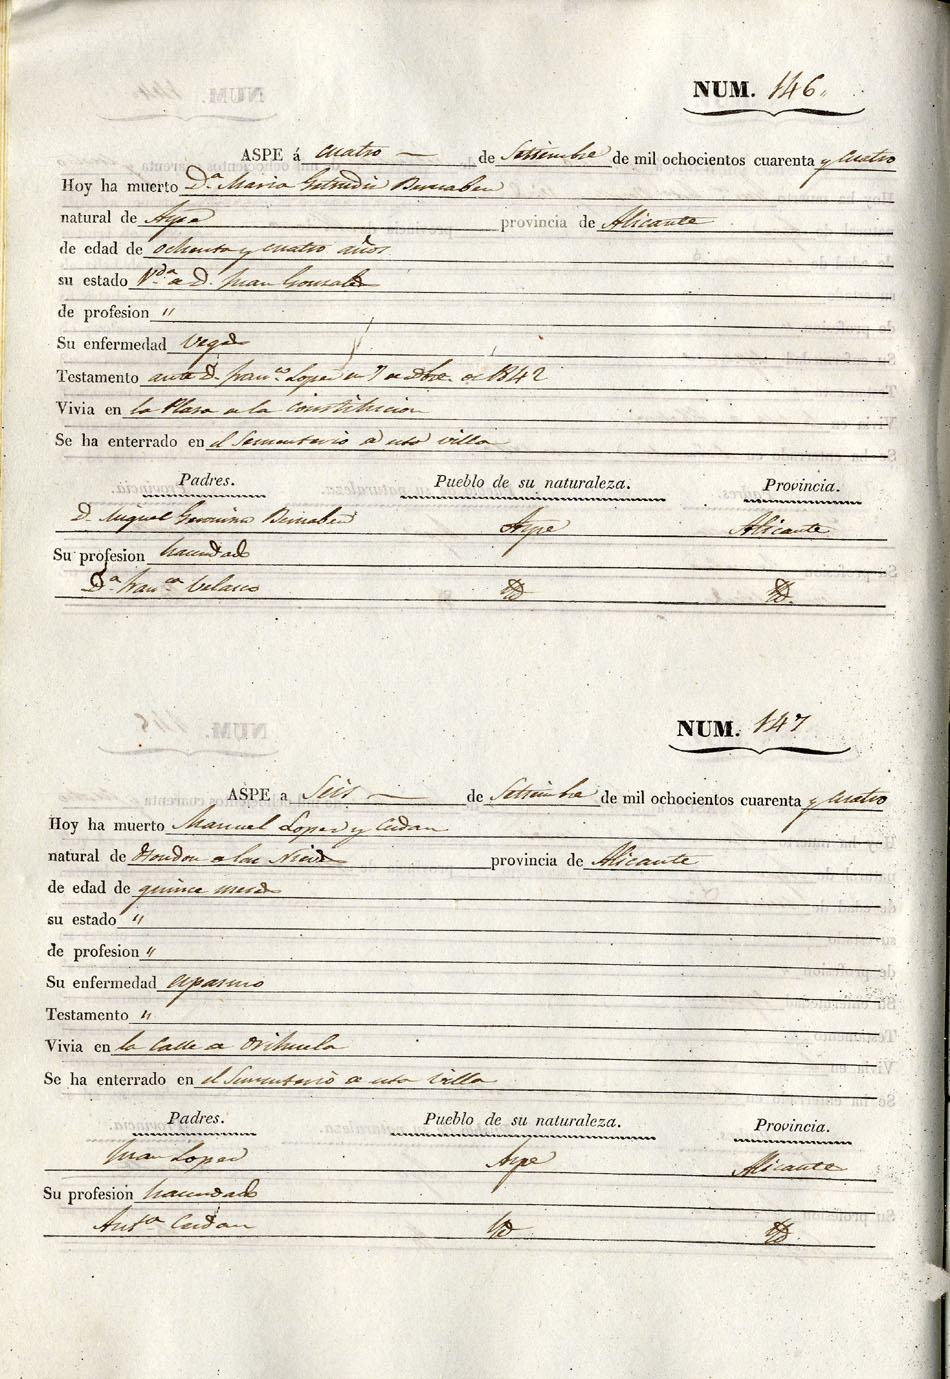 NUM. 146.
ASPE á cuatro de Setiembre de mil ochocientos cuarenta y cuatro
Hoy ha muerto D.ª Maria Getrudis Bernabeu
natural de Aspe provincia de Alicante
de edad de ochenta y cuatro años
su estado V.da de D. Juan Gonsales
de profesion "
Su enfermedad
Testamento ante D. Fran.co Lopes en 7 de de 1842
Vivia en la Plasa de la Constitucion
Se ha enterrado en el Sementerio de esta villa
Padres. Pueblo de su naturaleza. Provincia.
D. Miguel Geronimo Bernabeu Aspe Alicante
Su profesion hacendado
D.ª Fran.ca Velasco Yd Yd.
NUM. 147
ASPE a Seis de Setiembre de mil ochocientos cuarenta y cuatro
Hoy ha muerto Manuel Lopes y Cerdan
natural de Hondon de las Nieves provincia de Alicante
de edad de quince meses
su estado "
de profesion "
Su enfermedad
Testamento "
Vivia en la Calle de Orihuela
Se ha enterrado en el Sementerio de esta villa
Padres. Pueblo de su naturaleza. Provincia.
Juan Lopes Aspe Alicante
Su profesion hacendado
Ant.ª Cerdan Yd Yd.